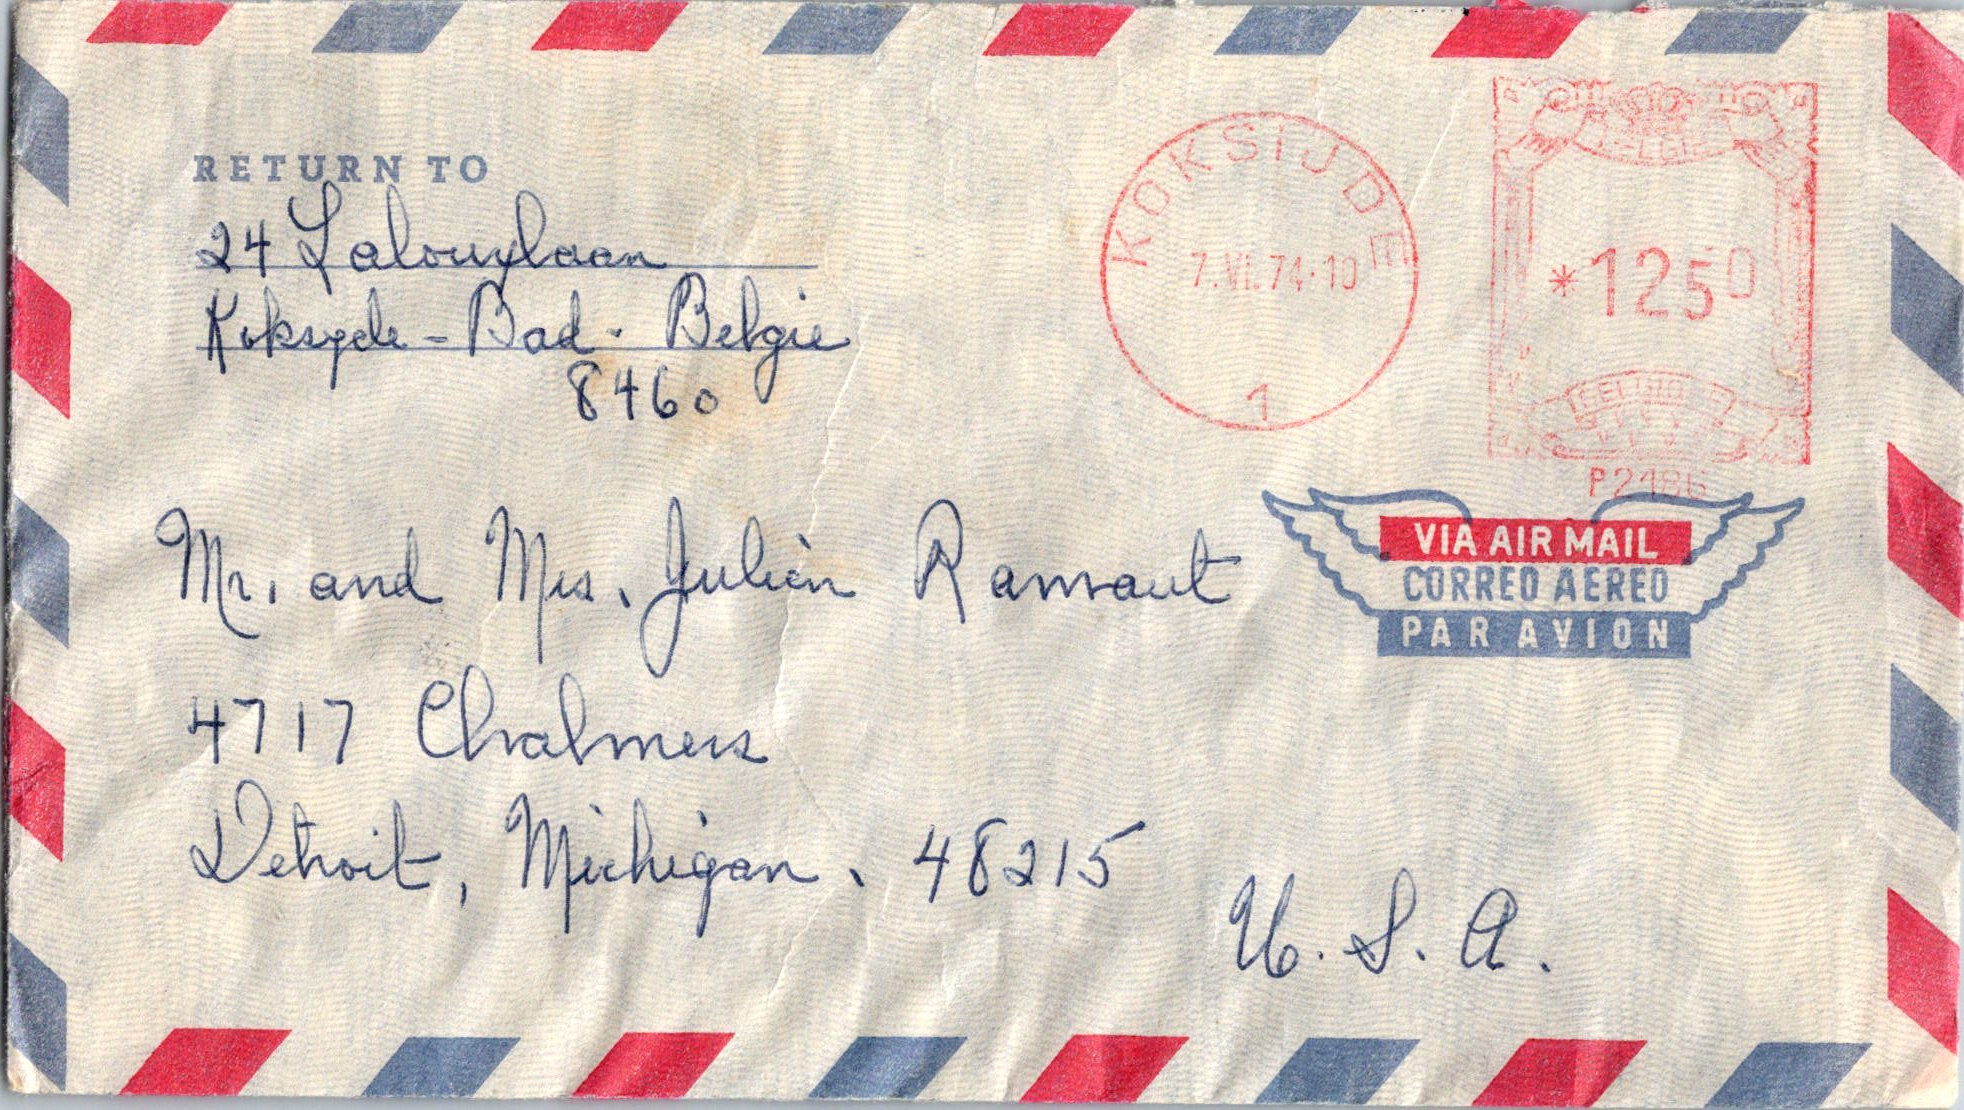 RETURN TO
24 Lalouxlaan
Koksyde - Bad - Belgie
8460
KOKSIJDE
7.VI.74-10
1
*1250
P2186
VIA AIR MAIL
CORREO AEREO
PAR AVION
Mr. and Mrs. Julien Ramaut
4717 Chalmers
Detroit, Michigan. 48215
U.S.A.